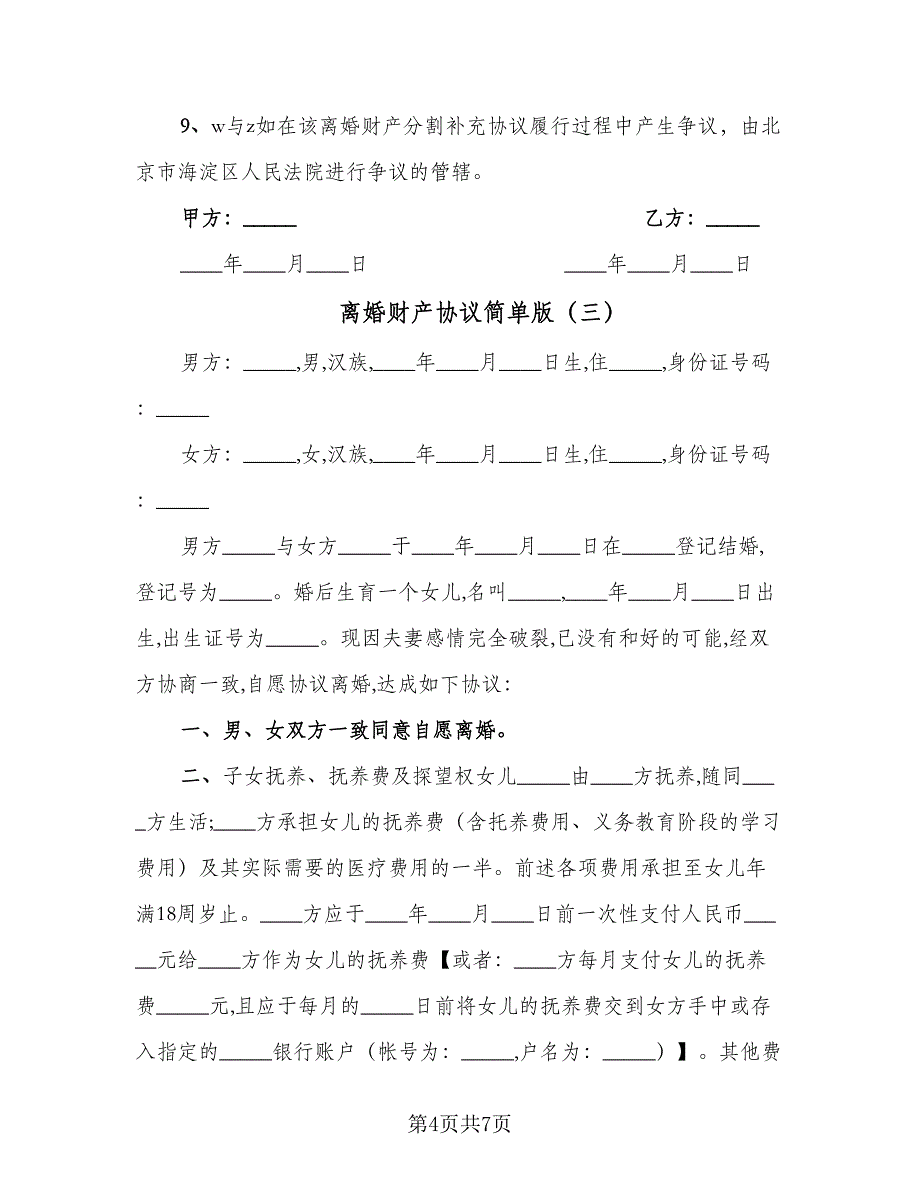 9、w与z如在该离婚财产分割补充协议履行过程中产生争议，由北
京市海淀区人民法院进行争议的管辖。
甲方：_____ 乙方：_____
____年____月____日 ____年____月____日
离婚财产协议简单版（三）
男方：_____,男,汉族,____年____月____日生,住_____,身份证号码
：_____
女方：_____,女,汉族,____年____月____日生,住_____,身份证号码
：_____
男方_____与女方_____于____年____月____日在_____登记结婚,
登记号为_____。婚后生育一个女儿,名叫_____,____年____月____日出
生,出生证号为_____。现因夫妻感情完全破裂,已没有和好的可能,经双
方协商一致,自愿协议离婚,达成如下协议：
一、男、女双方一致同意自愿离婚。
二、子女抚养、抚养费及探望权女儿_____由____方抚养,随同___
_方生活;____方承担女儿的抚养费（含托养费用、义务教育阶段的学习
费用）及其实际需要的医疗费用的一半。前述各项费用承担至女儿年
满18周岁止。____方应于____年____月____日前一次性支付人民币___
__元给____方作为女儿的抚养费【或者：____方每月支付女儿的抚养
费_____元,且应于每月的_____日前将女儿的抚养费交到女方手中或存
入指定的_____银行账户（帐号为：_____,户名为：_____）】。其他费
第4页共7页